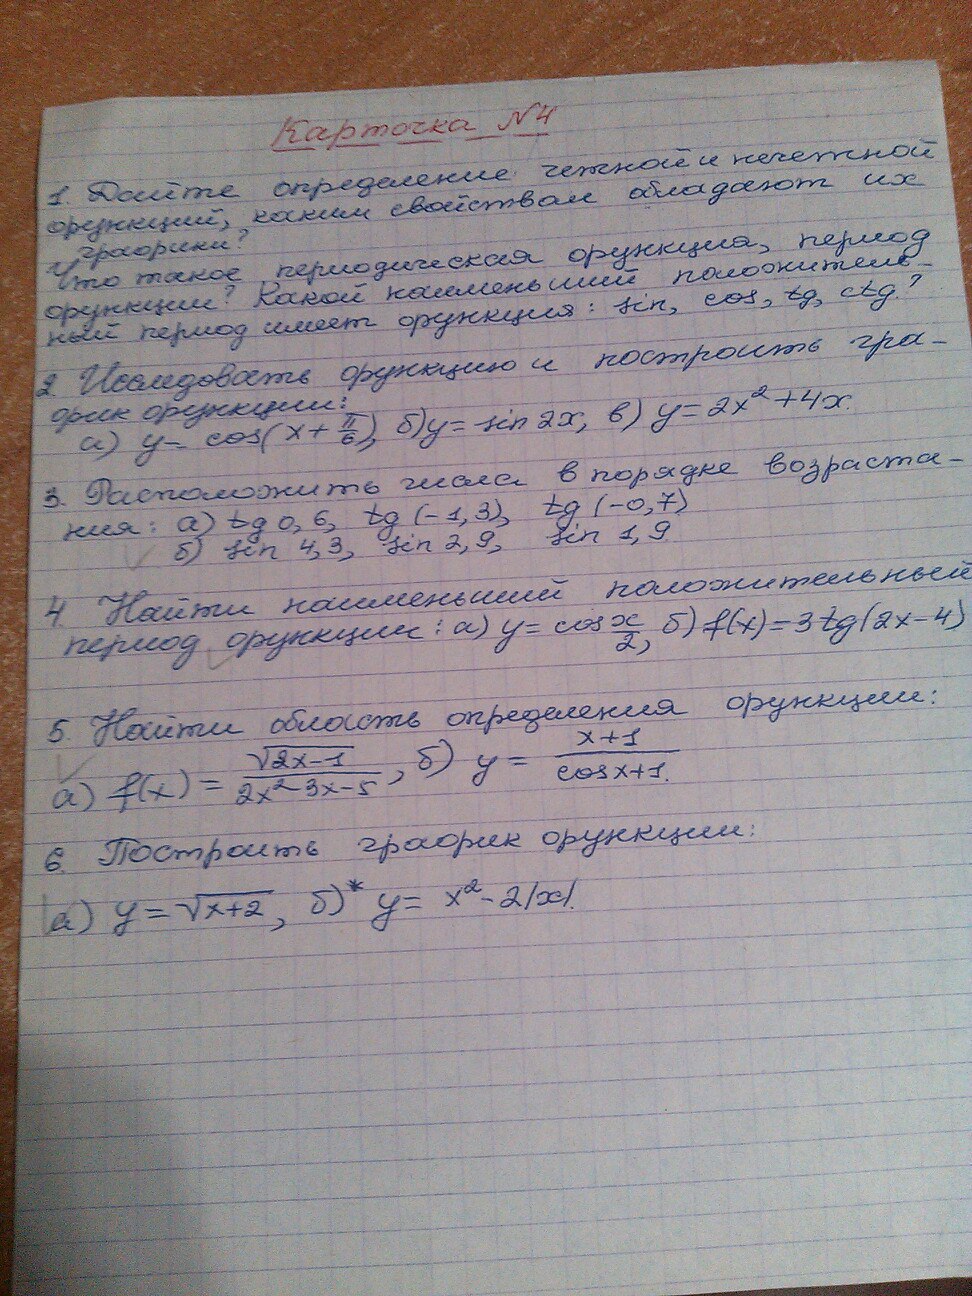 Карточка №4
1. Дайте определение четной и нечетной
функций, каким свойствам обладают их
графики?
Что такое периодическая функция, период
функции? Какой наименьший положитель-
ный период имеет функция: sin, cos, tg, ctg?
2. Исследовать функцию и построить гра-
фик функции:
а) y = cos(x + π/6), б) y = sin 2x, в) y = 2x² + 4x.
3. Расположить числа в порядке возраста-
ния: а) tg 0,6, tg (-1,3), tg (-0,7)
б) sin 4,3, sin 2,9, sin 1,9
4. Найти наименьший положительный
период функции: а) y = cos x/2, б) f(x) = 3 tg(2x-4)
5. Найти область определения функции:
а) f(x) = √(2x-1)/(2x²-3x-5), б) y = (x+1)/(cosx+1).
6. Построить график функции:
а) y = √(x+2), б)* y = x² - 2|x|.